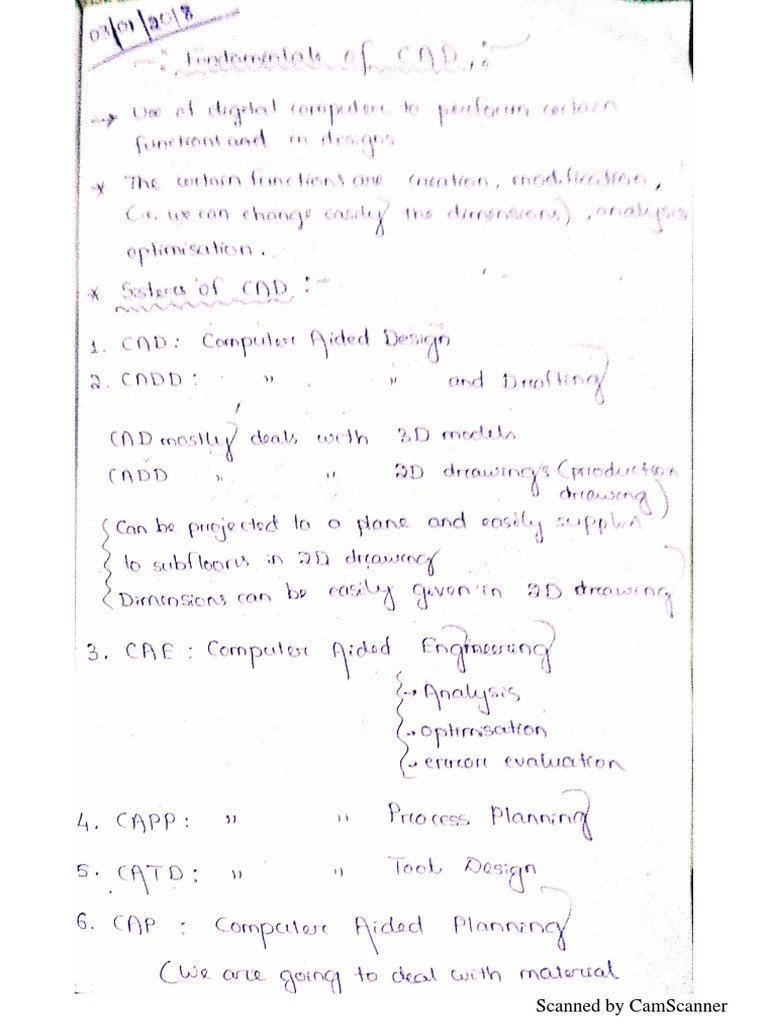 03/01/2018
-: Fundamentals of CAD :-
→ Use of digital computer to perform certain
functions and in designs
* The certain functions are creation, modification,
(i.e. we can change easily the dimensions), analysis
optimisation.
* Sisters of CAD :-
1. CAD : Computer Aided Design
2. CADD : " " and Drafting
CAD mostly deals with 3D models
CADD " " 2D drawings (production
drawing)
Can be projected to a plane and easily
to in 2D drawing
Dimensions can be easily given in 2D drawing
3. CAE : Computer Aided Engineering
→ Analysis
→ optimisation
→ error evaluation
4. CAPP : " " Process Planning
5. CATD : " " Tool Design
6. CAP : Computer Aided Planning
(We are going to deal with material
Scanned by CamScanner